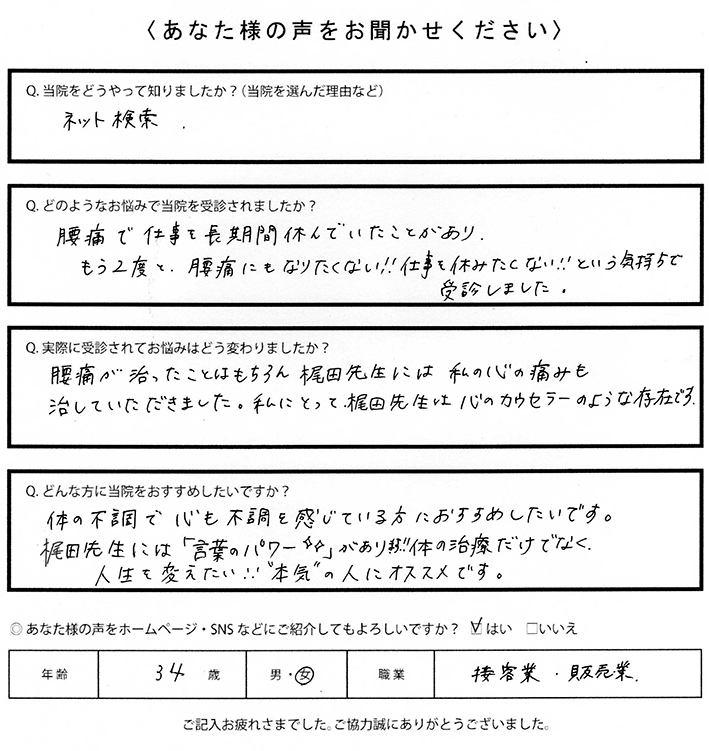 〈あなた様の声をお聞かせください〉
Q. 当院をどうやって知りましたか？（当院を選んだ理由など）
ネット検索.
Q. どのようなお悩みで当院を受診されましたか？
腰痛で仕事を長期間休んでいたことがあり.
もう2度と、腰痛にもなりたくない!!仕事を休みたくない!!という気持ちで
受診しました。
Q. 実際に受診されてお悩みはどう変わりましたか？
腰痛が治ったことはもちろん梶田先生には私の心の痛みも
治していただきました。私にとって、梶田先生は心のカウセラーのような存在です.
Q. どんな方に当院をおすすめしたいですか？
体の不調で心も不調を感じている方におすすめしたいです。
梶田先生には「言葉のパワー☆☆」があります!!体の治療だけでなく、
人生を変えたい!!"本気"の人にオススメです。
◎あなた様の声をホームページ・SNSなどにご紹介してもよろしいですか？ ☑はい □いいえ
年齢 34 歳 男・女 職業 接客業・販売業.
ご記入お疲れさまでした。ご協力誠にありがとうございました。